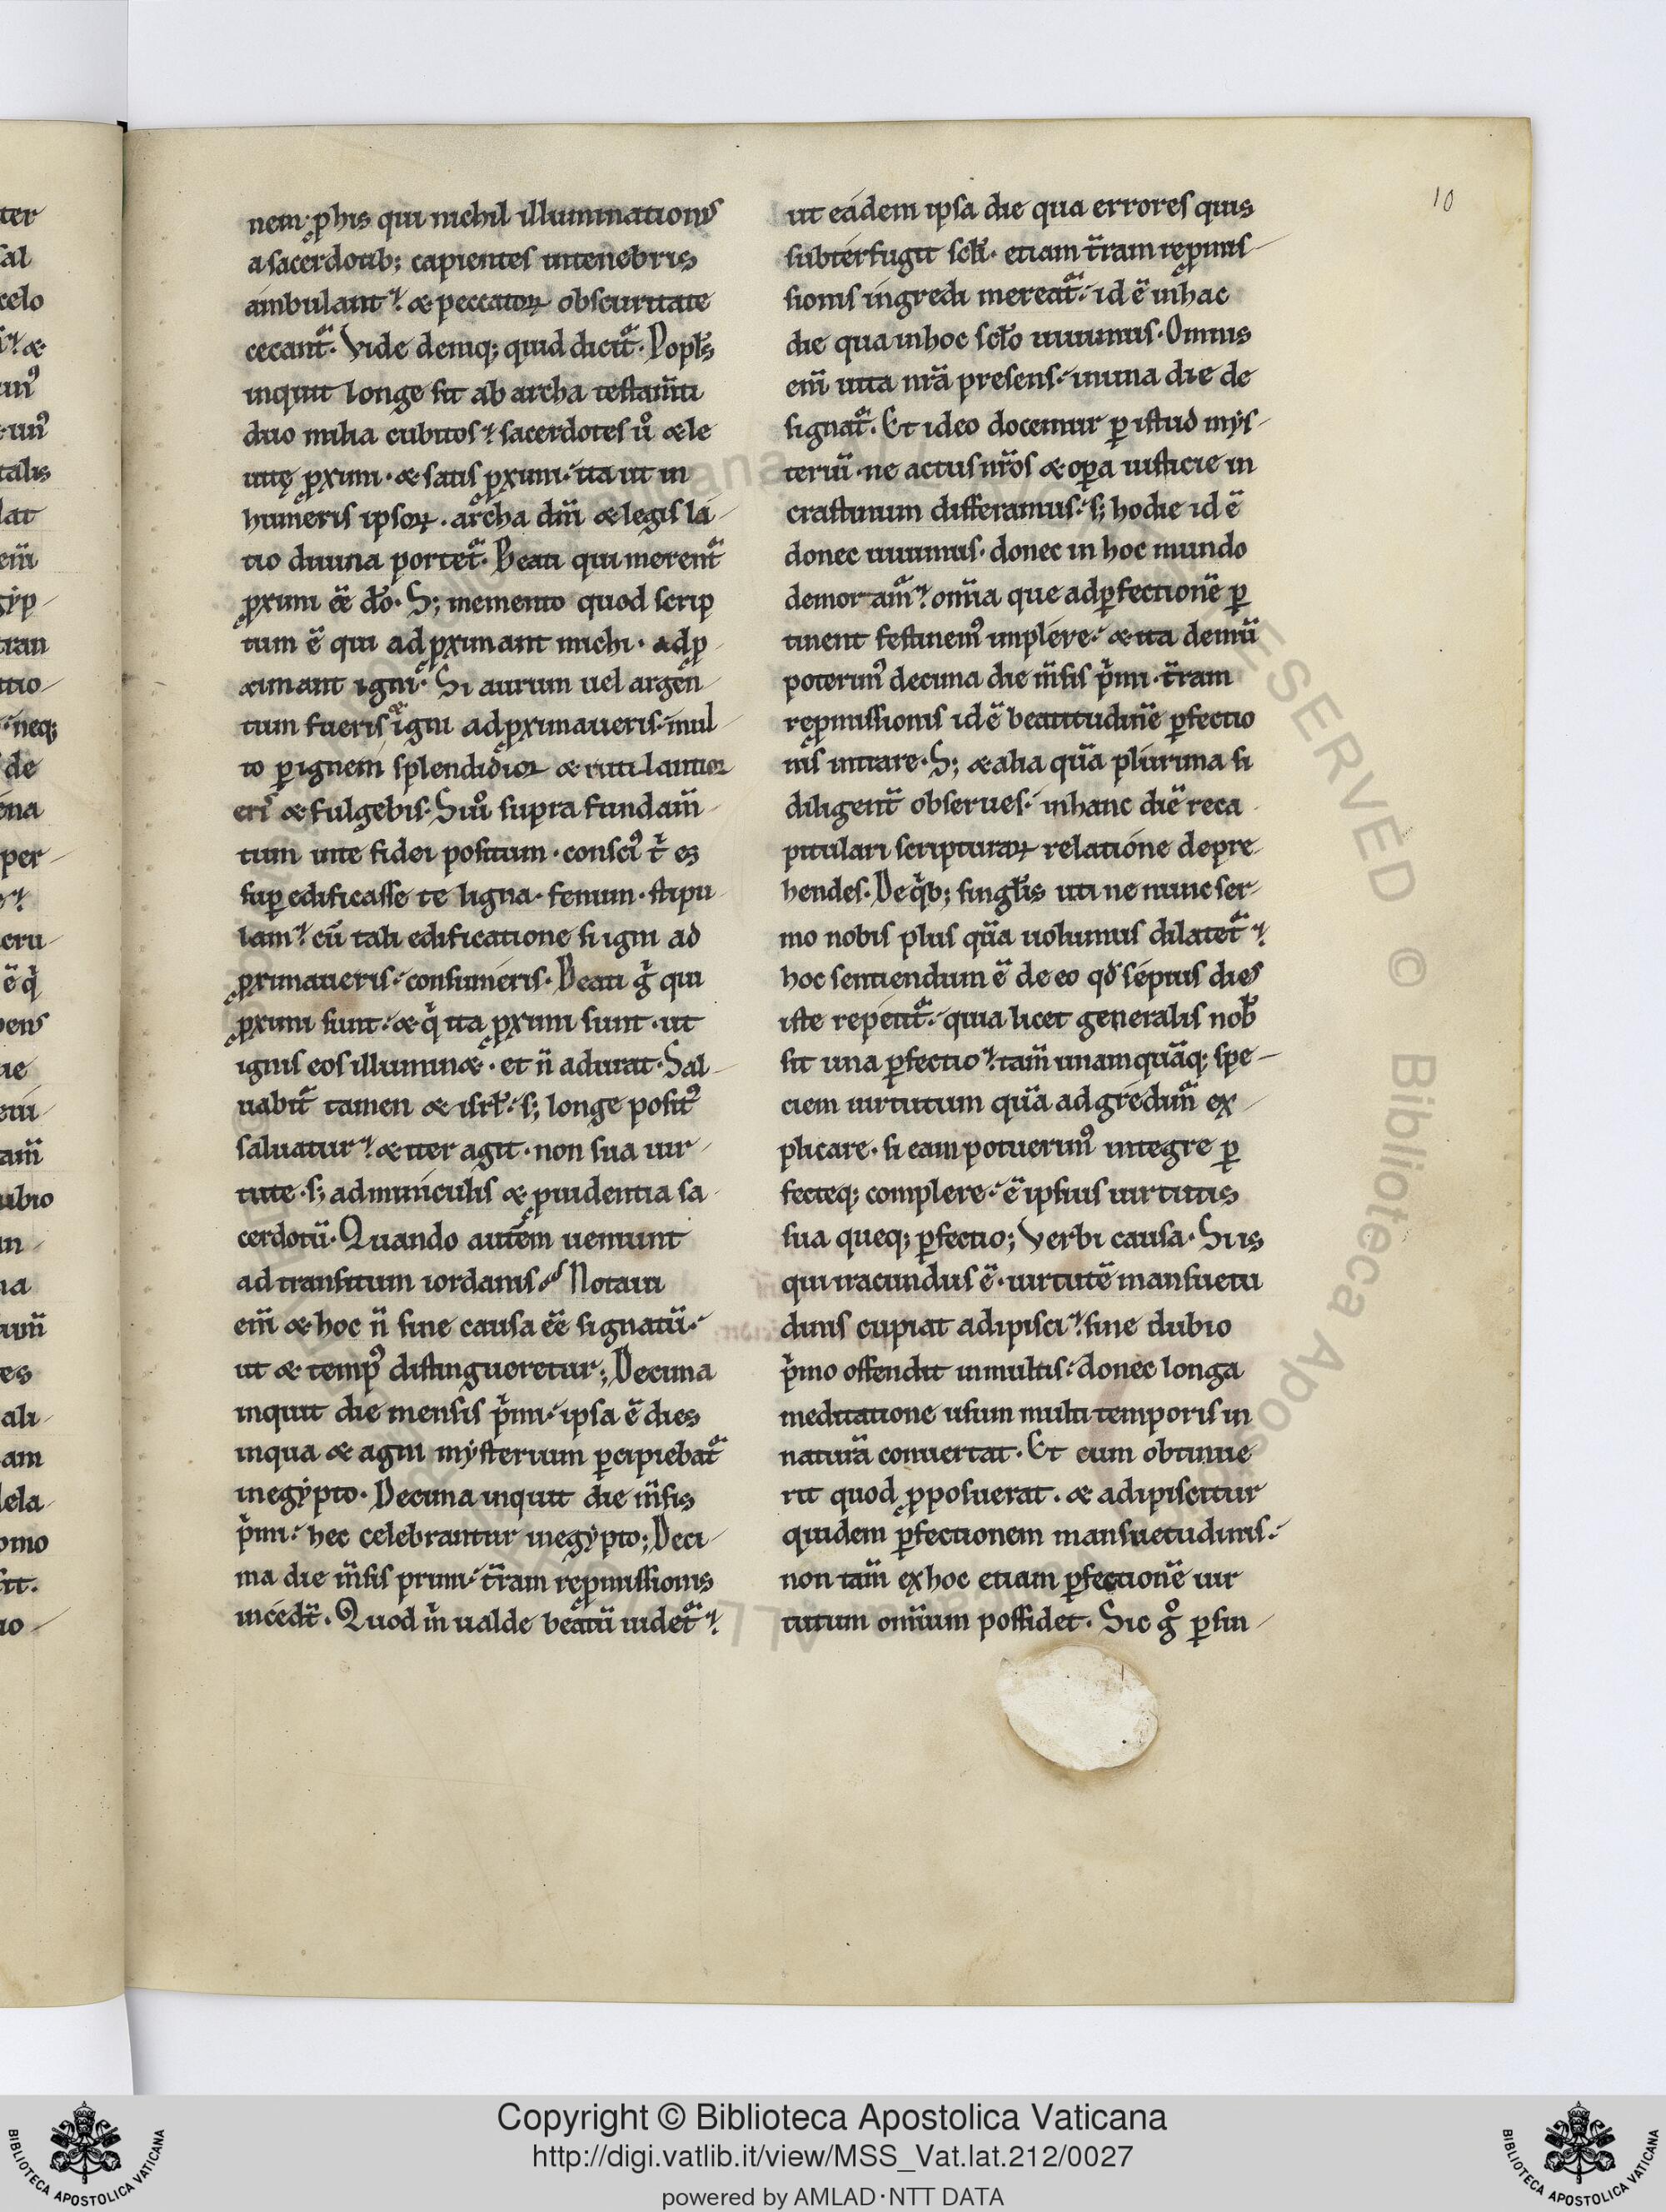 10
nem; ꝓ his qui nichil illuminationis
a sacerdotib; capientes in tenebris
ambulant? & peccatoꝝ obscuritate
cecant᷑. Vide deniq; quid dicit᷑. Popl̄s
inquit longe sit ab archa testam̄ti
duo milia cubitos? sacerdotes ů & le
uitę ꝓximi. & satis ꝓximi. ita ut in
humeris ipsoꝝ. archa dn̄i & legis la-
tio diuina portet᷑. Beati qui merent᷑
ꝓximi ēē dō. S; memento quod scrip
tum ē qui adꝓximant michi. adpro-
ximant igni. Si aurum uel argen-
tum fueris & igni adꝓximaueris. mul-
to ꝑ ignem splendidior & rutilantior
eris & fulgebis. Siů supra fundam̄-
tum in te fidei positum. consci᷒ t̄ es
suꝑ edificasse te ligna. fenum. stipu-
lam? cū tali edificatione si igni ad
ꝓximaueris. consumeris. Beati g̊ qui
ꝓximi sunt. & q̇ ita ꝓximi sunt. ut
ignis eos illumin&. et n̄ adurat. Sal-
uabit᷑ tamen & isrl̄. s; longe posit᷒
saluatur? & iter agit. non sua uir-
tute. s; adminiculis & ꝓuidentia sa-
cerdotū. Quando autem ueniunt
ad transitum iordanis. Notaui
eni̅ & hoc n̄ sine causa ēē signatū.
ut & temp᷒ distingueretur; Decima
inquit die mensis p̄mi. ipsa ē dies
in qua & agni mysterium ꝑcipiebat᷑
in egypto. Decima inquit die m̄sis
p̄mi. hec celebrantur in egypto; Deci-
ma die m̄sis primi. t̄ram repromissionis
incedt̄. Quod m̄ ualde beatū uidet᷑?
ut eadem ipsa die qua errores quis
subterfugit scl̄i. etiam t̄ram repromis-
sionis ingredi mereat᷑. id ē in hac
die qua in hoc scl̄o uiuimus. Omnis
eni̅ uita nrā presens. in una die de
signat᷑. Et ideo docemur ꝑ istud mys-
teriū. ne actus nr̄os & oꝑa iusticie in
crastinum differamus. s; hodie id ē
donec uiuimus. donec in hoc mundo
demoramᷣ? om̄ia que ad ꝑfectionē ꝑ
tinent festinem᷒ implere. & ita demū
poterim᷒ decima die m̄sis p̄mi. t̄ram
repromissionis id ē beatitudinē ꝑfectio
nis intrare. S; & alia quā plurima si
diligent̄ obserues. in hanc diē reca-
pitulari scripturaꝝ relatione depre-
hendes. De q̇b; singl̄is uti ne nunc ser-
mo nobis plus quā uolumus dilatet᷑?
hoc sentiendum ē de eo qđ sepius dies
iste repetit᷑. quia licet generalis nob̄
sit una ꝑfectio? tam̄ unamquāq; spe-
ciem uirtutum quā adgredimᷣ ex-
plicare. si eam potuerim᷒ integre ꝑ
fecteq; complere. ē ipsius uirtutis
sua queq; ꝑfectio; Verbi causa. Si is
qui iracundus ē. uirtutē mansuetu
dinis cupiat adipisci? sine dubio
p̄mo offendit in multis. donec longa
meditatione usum multi temporis in
naturā conuertat. Et cum obtinue
rit quod ꝓposuerat. & adipiscitur
quidem ꝑfectionem mansuetudinis.
non tam̄ ex hoc etiam ꝑfectionē uir
tutum omnium possidet. Sic g̊ ꝑ sin-
Copyright © Biblioteca Apostolica Vaticana
http://digi.vatlib.it/view/MSS_Vat.lat.212/0027
powered by AMLAD·NTT DATA
BIBLIOTECA APOSTOLICA VATICANA
BIBLIOTECA APOSTOLICA VATICANA